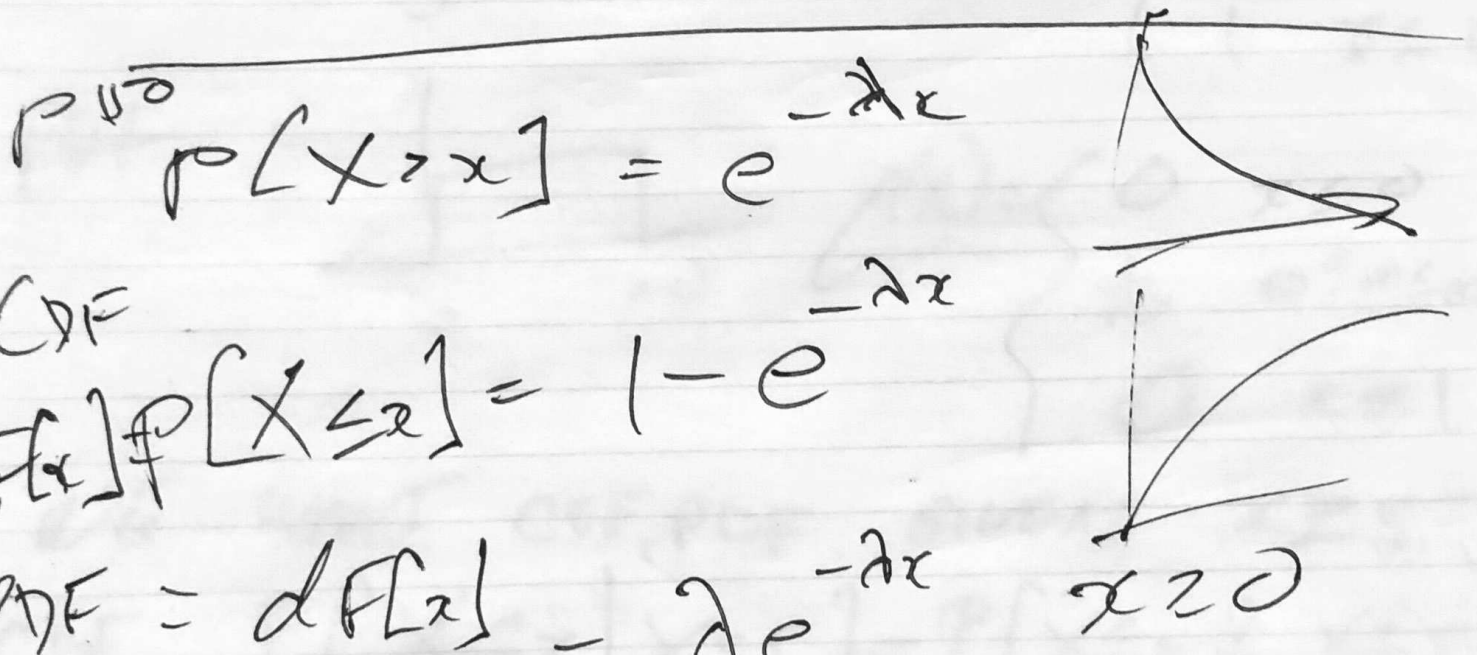 P[X>x] = e^{-λx}
CDF
F[x] P[X≤x] = 1 - e^{-λx}
PDF = dF[x] = λe^{-λx} x≥0